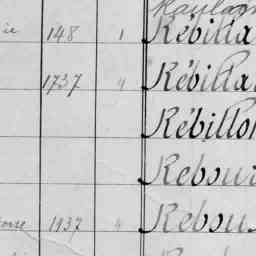 148 1 Rébilla
1737 4 Rébilla
Rébillo
Rebour
1937 4 Rebou